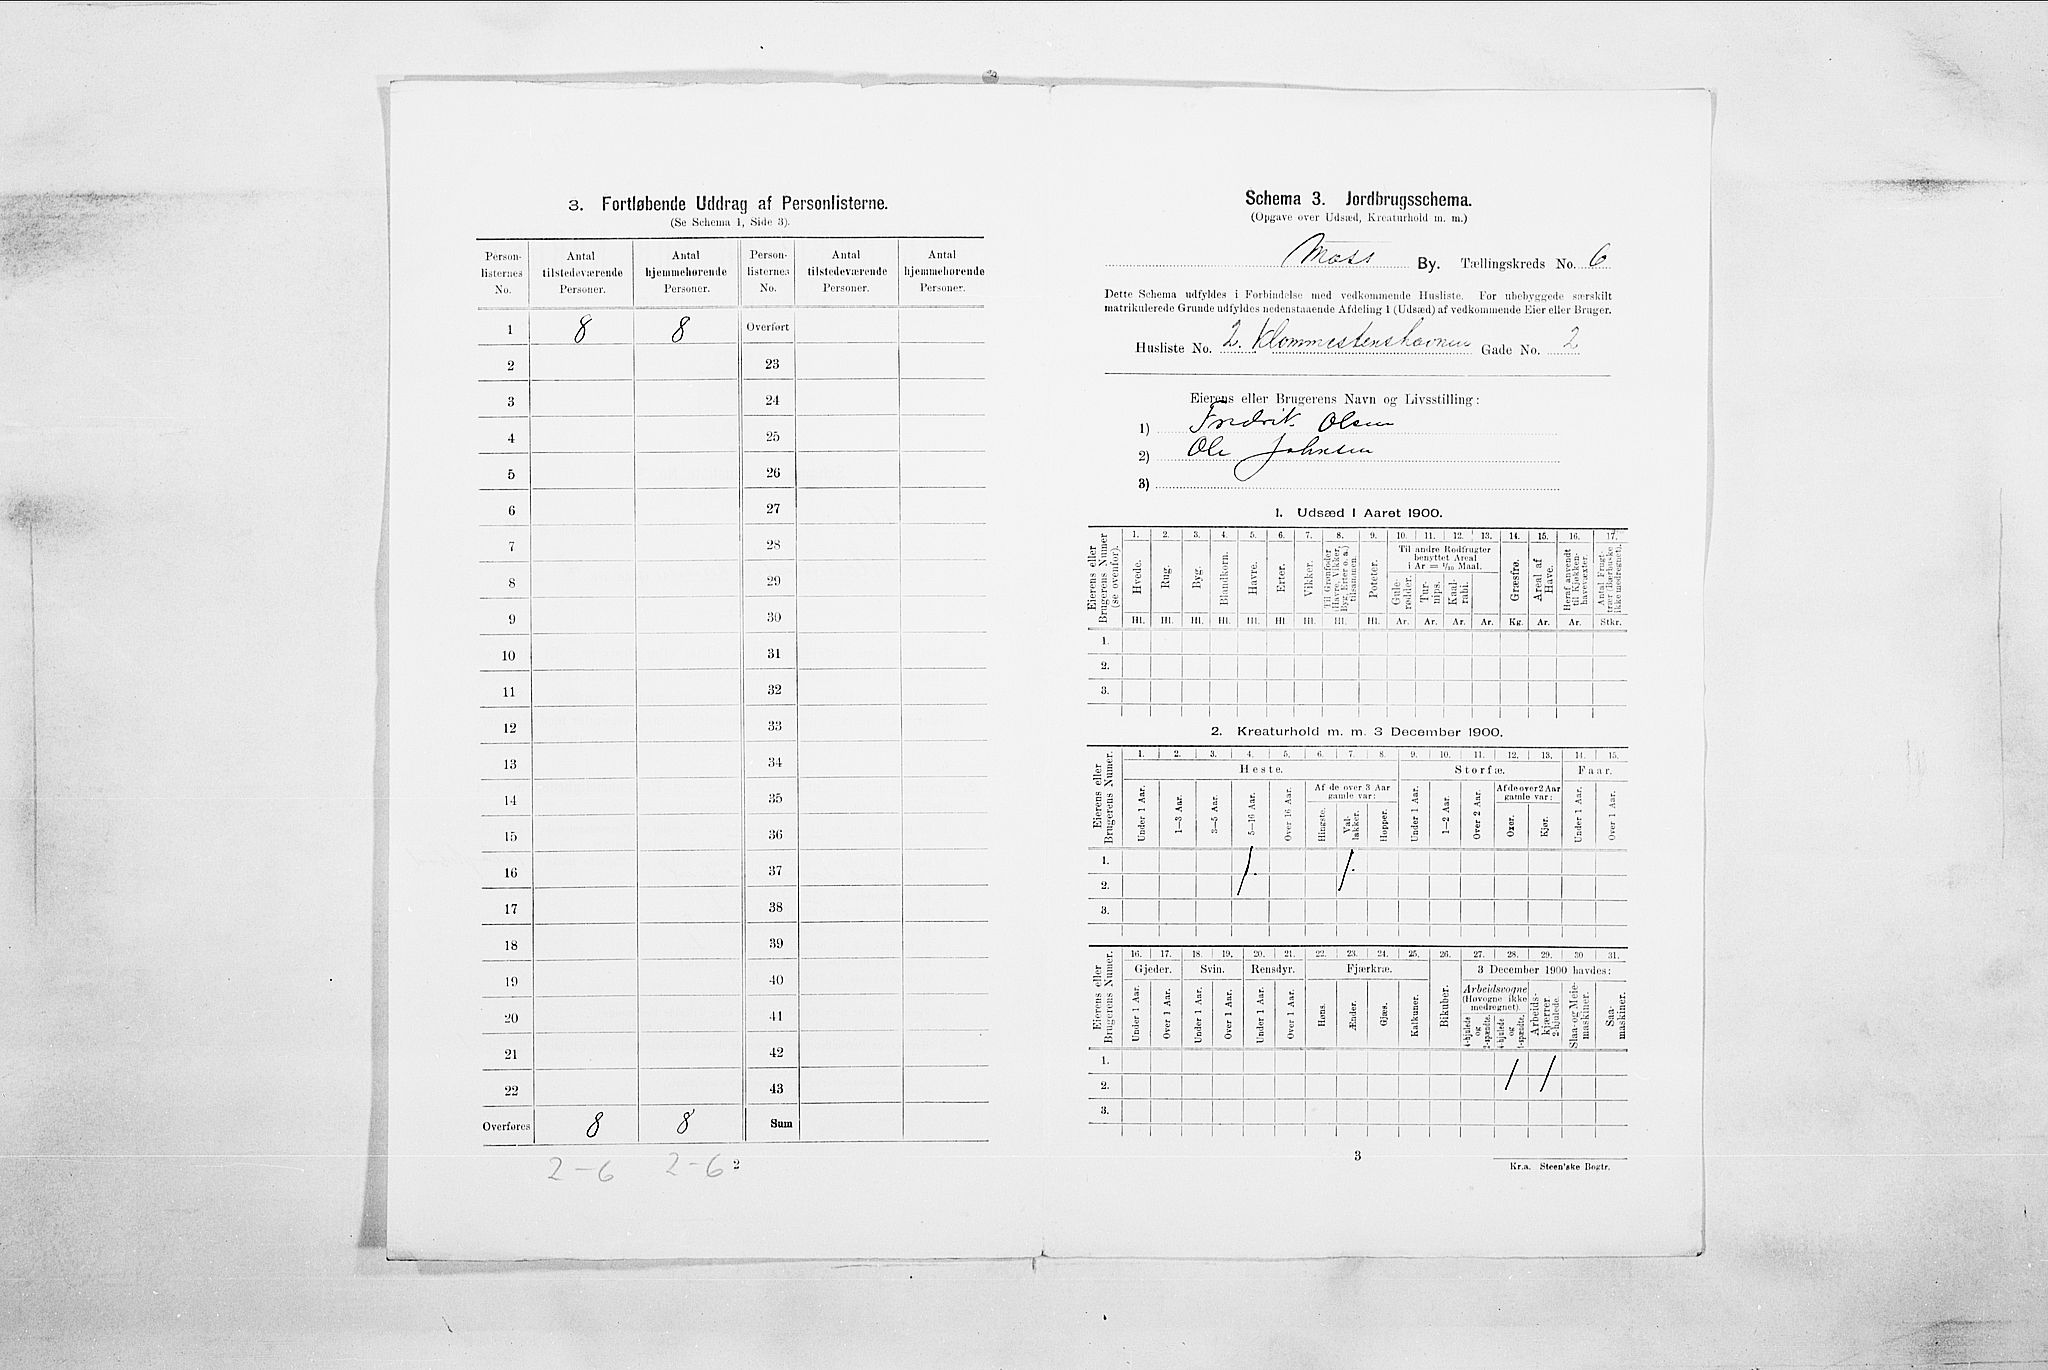 3. Fortløbende Uddrag af Personlisterne.
(Se Schema 1, Side 3).
Person-listernes No. | Antal tilstedeværende Personer. | Antal hjemmehørende Personer. | Person-listernes No. | Antal tilstedeværende Personer. | Antal hjemmehørende Personer.
1 8 8 Overført
2 23
3 24
4 25
5 26
6 27
7 28
8 29
9 30
10 31
11 32
12 33
13 34
14 35
15 36
16 37
17 38
18 39
19 40
20 41
21 42
22 43
Overføres 8 8 Sum
2-6 2-6 2
Schema 3. Jordbrugsschema.
(Opgave over Udsæd, Kreaturhold m. m.)
Moss By. Tællingskreds No. 6
Dette Schema udfyldes i Forbindelse med vedkommende Husliste. For ubebyggede særskilt
matrikulerede Grunde udfyldes nedenstaaende Afdeling 1 (Udsæd) af vedkommende Eier eller Bruger.
Husliste No. 2. Klommestenshavnen Gade No. 2
Eierens eller Brugerens Navn og Livsstilling:
1) Fredrik Olsen
2) Ole Johnsen
3)
1. Udsæd i Aaret 1900.
Eierens eller Brugerens Numer (se ovenfor).
1. 2. 3. 4. 5. 6. 7. 8. 9. 10. 11. 12. 13. 14. 15. 16. 17.
Til andre Rodfrugter benyttet Areal i Ar = 1/10 Maal.
Hvede. Rug. Byg. Blandkorn. Havre. Erter. Vikker. Til Grønfoder (Havre, Vikker, Byg, Erter o. a.) tilsammen. Poteter. Gule-rødder. Tur-nips. Kaal-rabi. Græsfrø. Areal af Have. Heraf anvendt til Kjøkken-havevæxter. Antal Frugt-trær (Bærbuske ikke medregnet).
Hl. Hl. Hl. Hl. Hl. Hl Hl. Hl. Hl. Ar. Ar. Ar. Ar. Kg. Ar. Ar. Stkr.
1.
2.
3.
2. Kreaturhold m. m. 3 December 1900.
Eierens eller Brugerens Numer.
1. 2. 3. 4. 5. 6. 7. 8. 9. 10. 11. 12. 13. 14. 15.
Heste. Storfæ. Faar.
Af de over 3 Aar gamle var: Af de over 2 Aar gamle var:
Under 1 Aar. 1—3 Aar. 3—5 Aar. 5—16 Aar. Over 16 Aar. Hingste. Val-lakker. Hopper. Under 1 Aar. 1—2 Aar. Over 2 Aar. Oxer. Kjør. Under 1 Aar. Over 1 Aar.
1.
2. 1. 1.
3.
Eierens eller Brugerens Numer.
16. 17. 18. 19. 20. 21. 22. 23. 24. 25. 26. 27. 28. 29. 30 31.
Gjeder. Svin. Rensdyr. Fjærkræ. 3 December 1900 havdes:
Arbeidsvogne (Høvogne ikke medregnet).
Under 1 Aar. Over 1 Aar. Under 1 Aar. Over 1 Aar. Under 1 Aar. Over 1 Aar. Høns. Ænder. Gjæs. Kalkuner. Bikuber. 4-hjulede og 2-spændte. 4-hjulede og 1-spændte. Arbeids-kjærrer 2-hjulede. Slaa- og Meie-maskiner. Saa-maskiner.
1.
2. 1 1
3.
3
Kr.a. Steen'ske Bogtr.